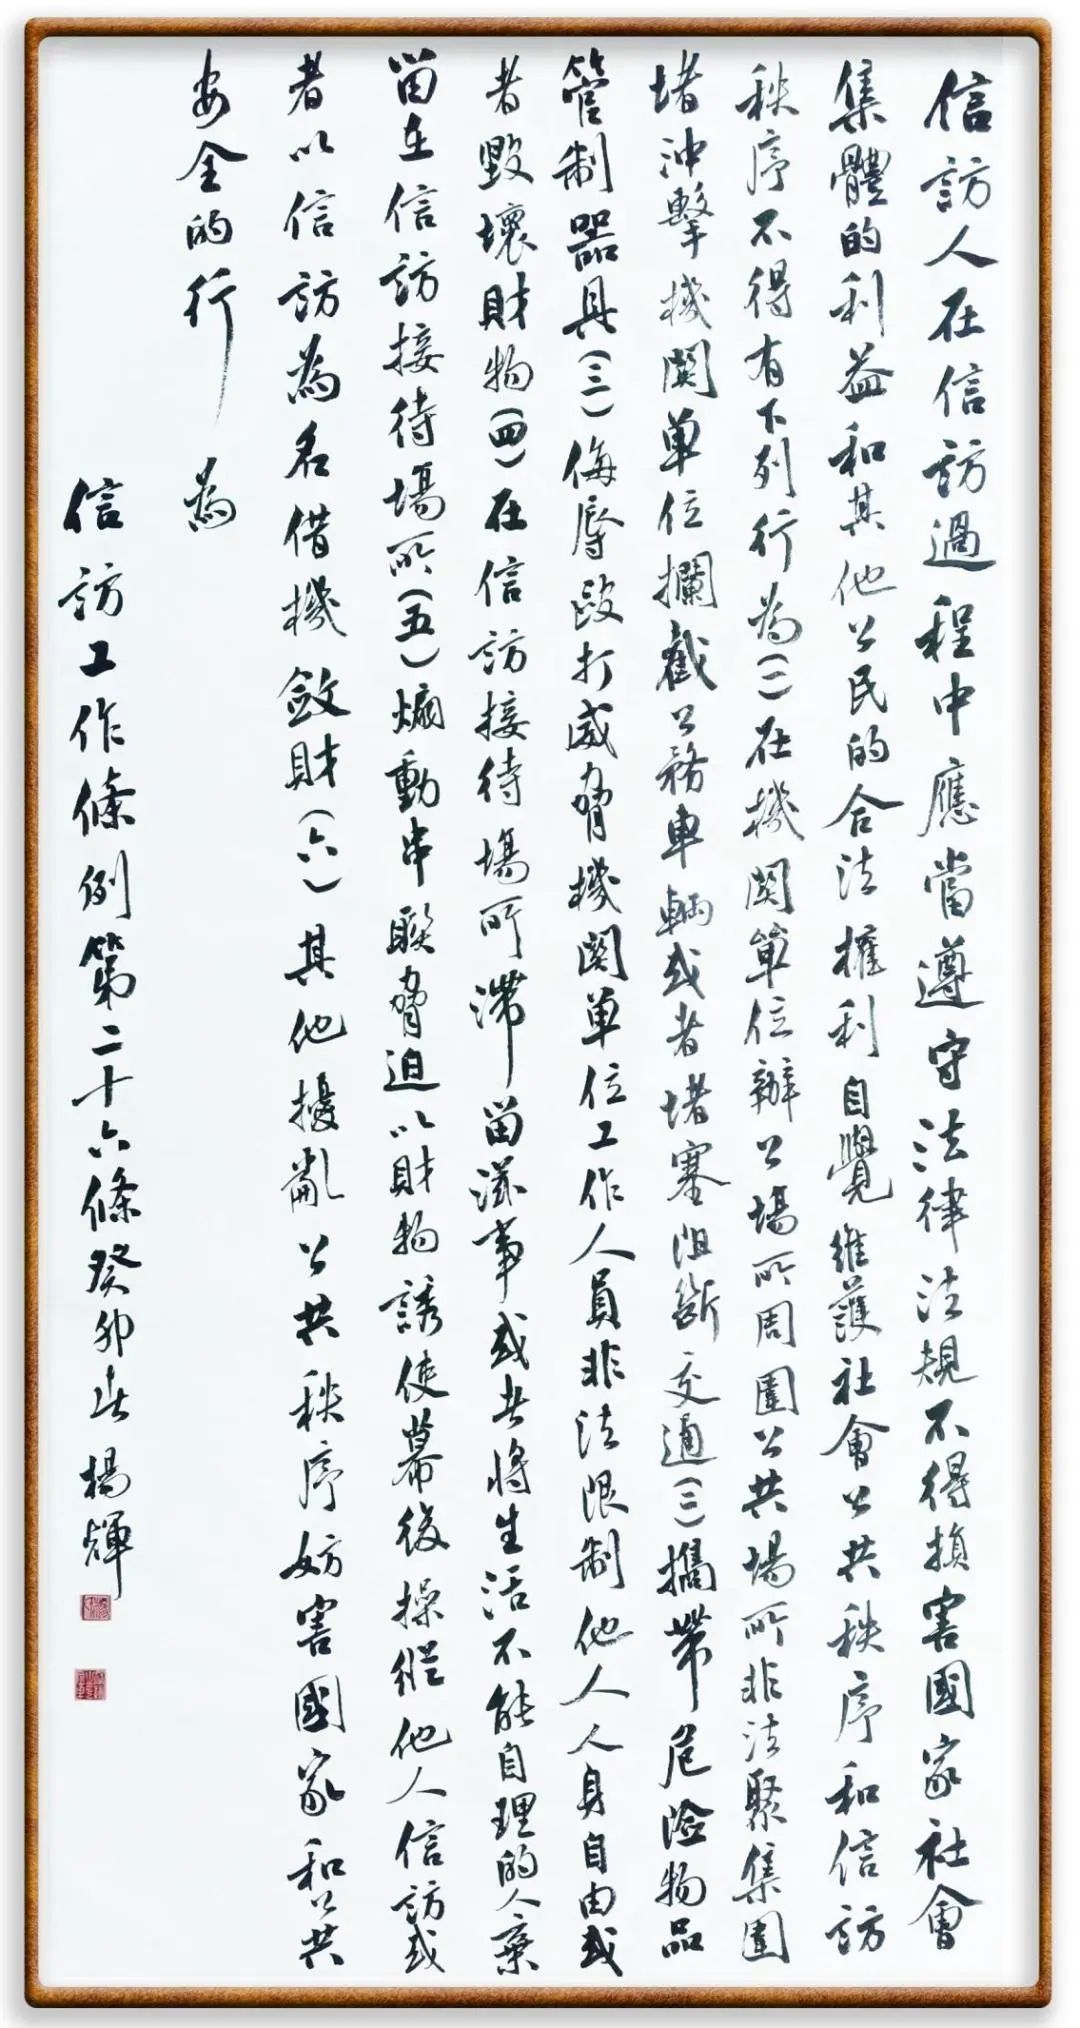 信訪人在信訪過程中應當遵守法律法規不得損害國家社會
集體的利益和其他公民的合法權利自覺維護社會公共秩序和信訪
秩序不得有下列行為(一)在機関單位辦公場所周圍公共場所非法聚集圍
堵沖擊機関單位攔截公務車輛或者堵塞阻斷交通(二)攜帶危險物品
管制器具(三)侮辱毆打威脅機関單位工作人員非法限制他人人身自由或
者毀壞財物(四)在信訪接待場所滯留滋事或者將生活不能自理的人棄
留在信訪接待場所(五)煽動串聯脅迫以財物誘使幕後操縱他人信訪或
者以信訪為名借機斂財(六)其他擾亂公共秩序妨害國家和公共
安全的行為
信訪工作條例第二十六條癸卯春楊輝